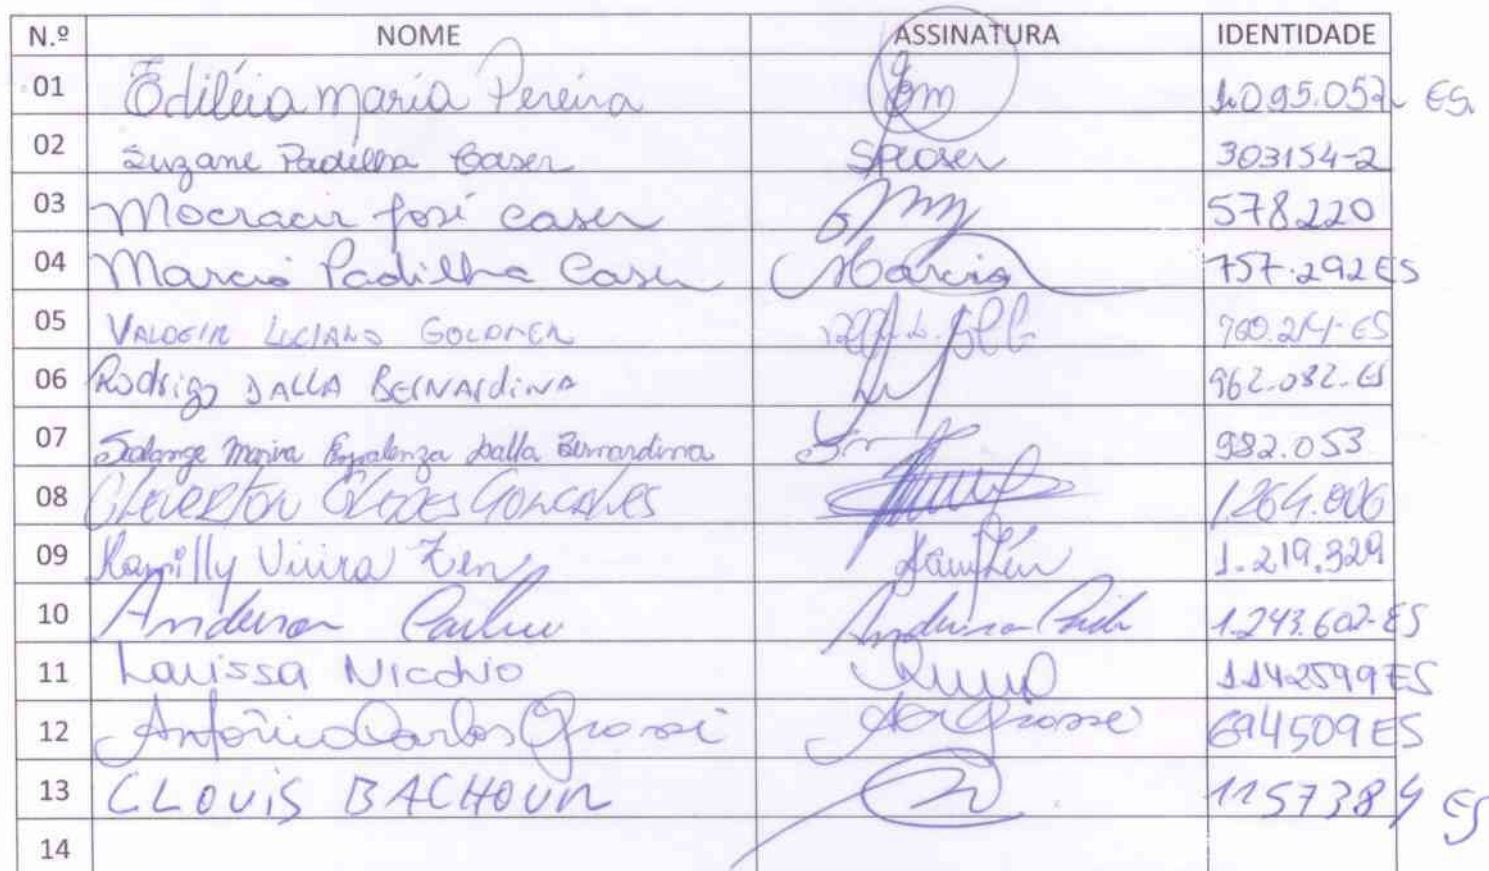 N.º NOME ASSINATURA IDENTIDADE
01 Ediléia maria Pereira Em 1.095.052 ES
02 Suzane Padilha Caser SPCaser 303154-2
03 Mocracir José Caser 578220
04 Marcio Padilha Caser Marcio 757.292 ES
05 VALDEIR LUCIANO GOLDNER 760.214-ES
06 Rodrigo DALLA BERNARDINA 962.082-ES
07 Solange Maria Dalla Bernardina 982.053
08 Cleverton Gonçalves 1264.006
09 Kamilly Vieira Zen KamZen 1.219.329
10 Anderson Anderson 1.243.602-ES
11 Larissa Nicchio 1142599 ES
12 Antônio Carlos Grossi Grosse 694509 ES
13 CLOVIS BACHOUR 1157384 ES
14